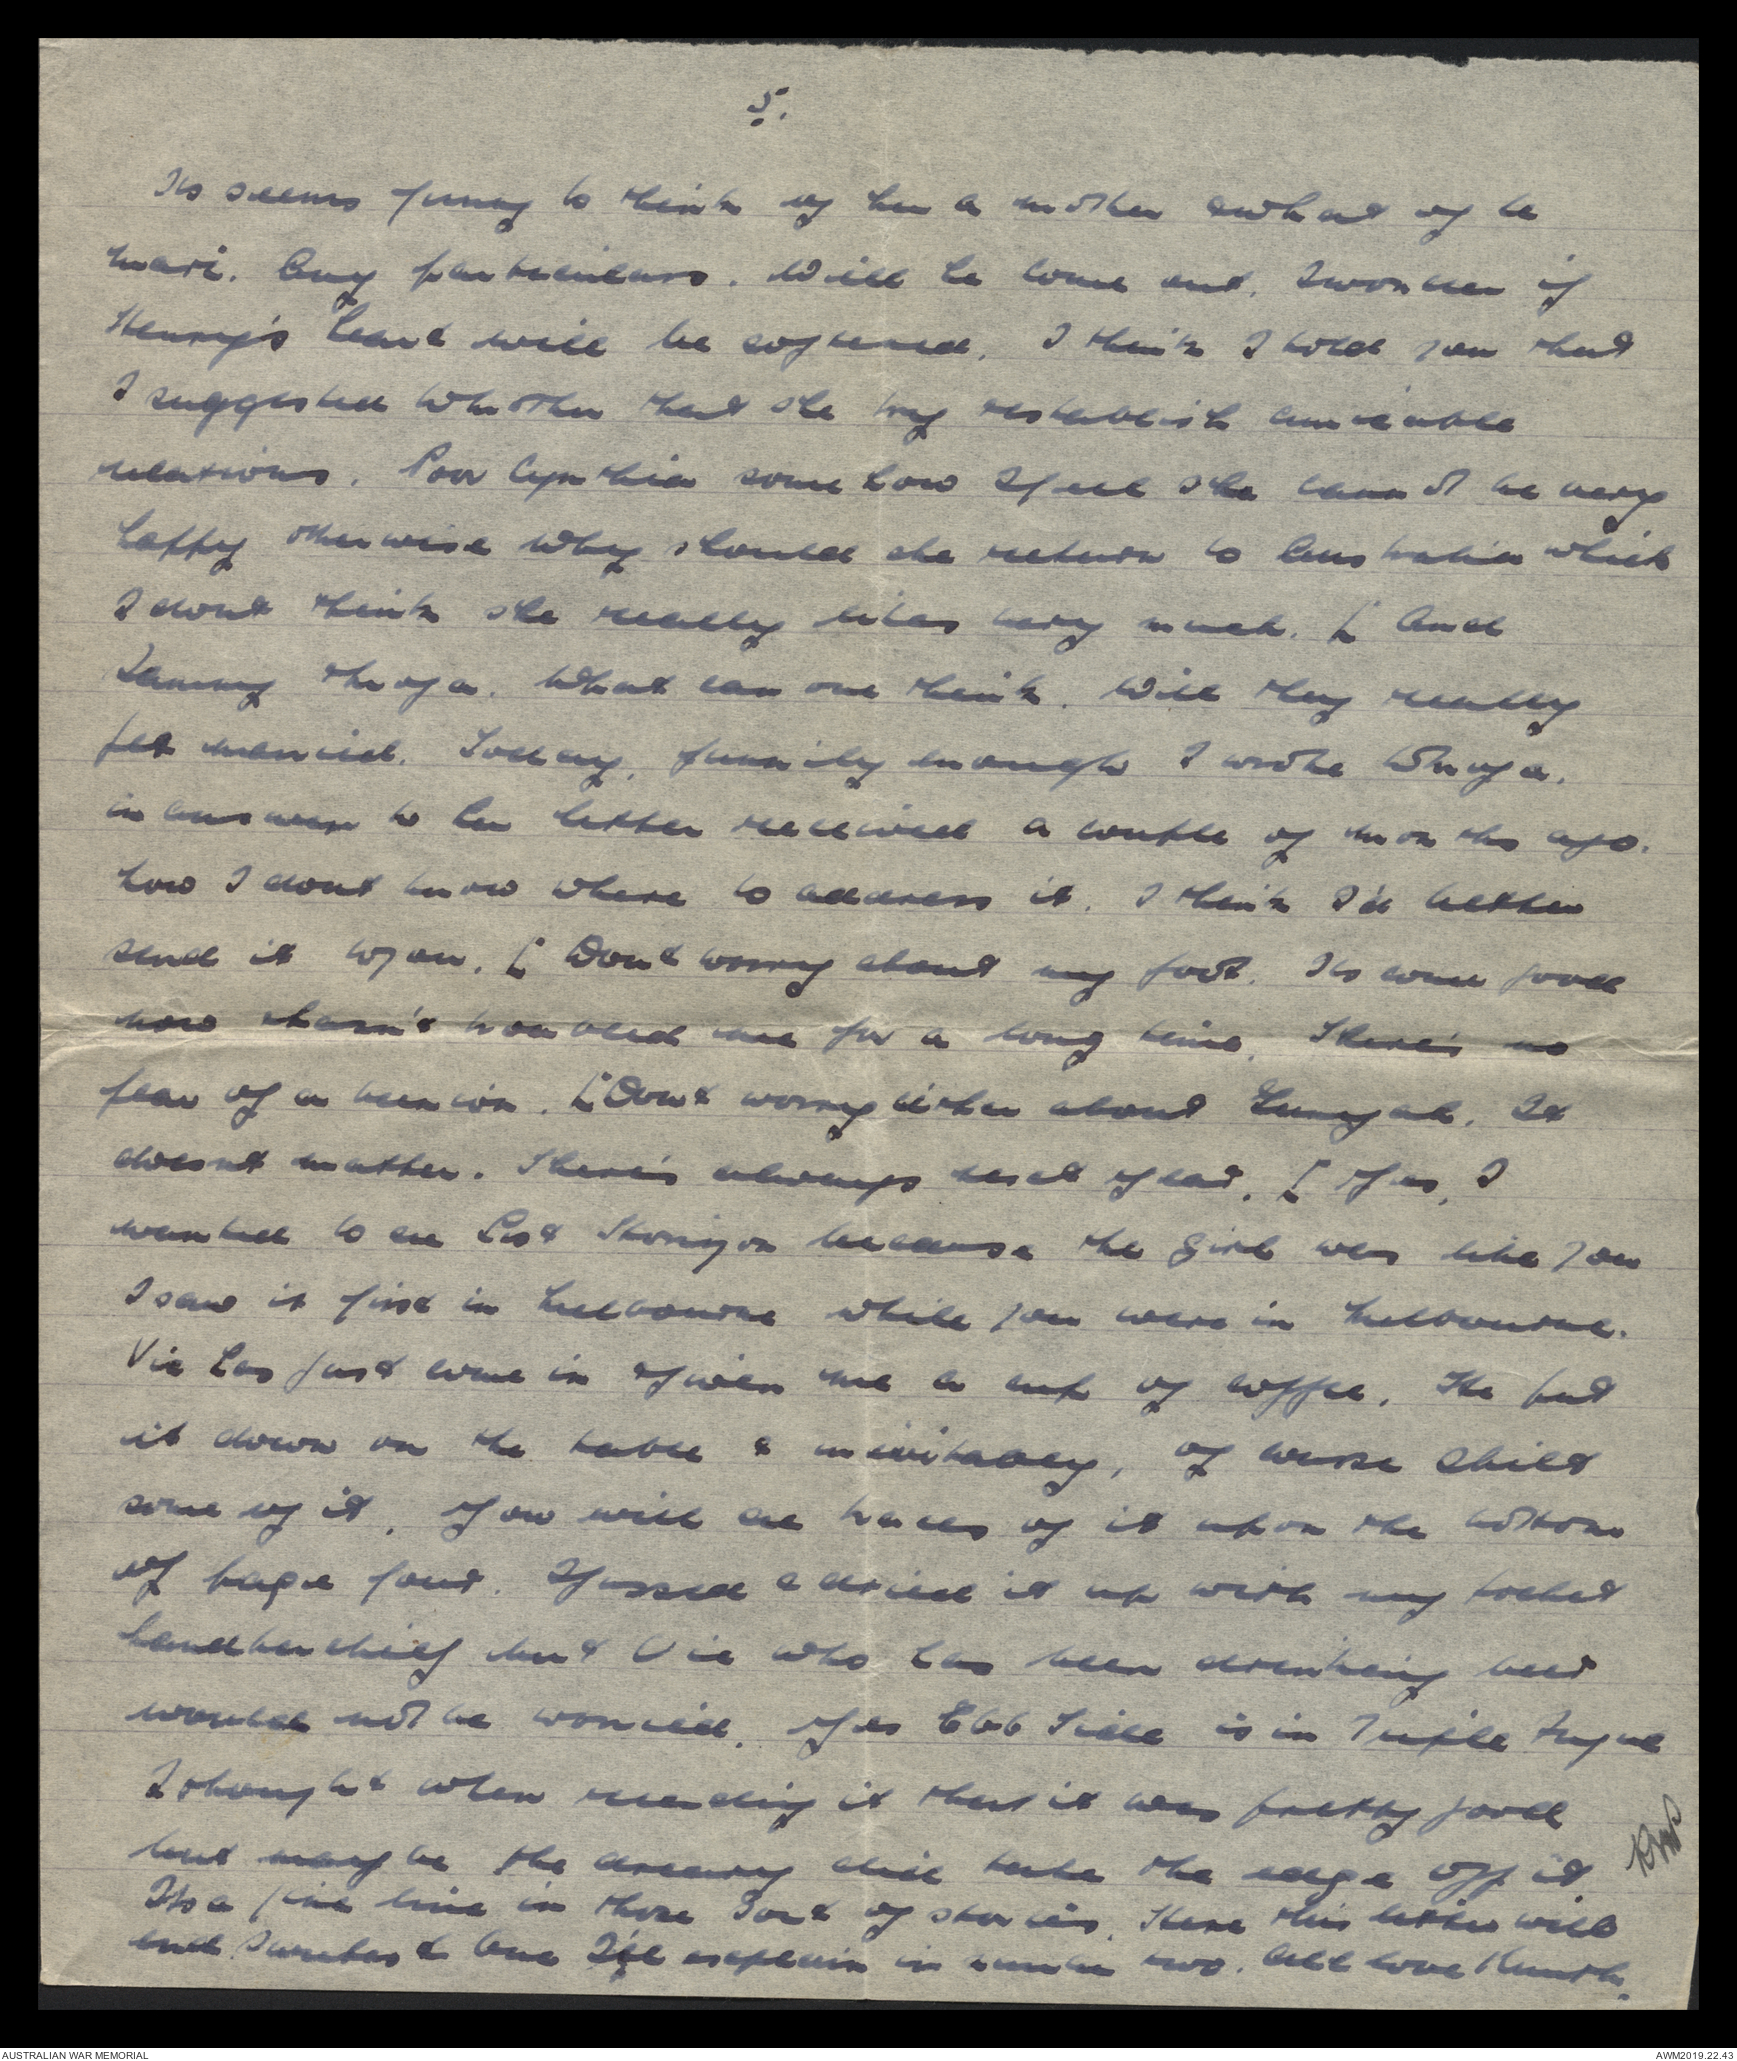 5.
Its seems funny to think of her a mother & what of le
mari. Any particulars. Will he come out. I wonder if
Henry's heart will be softened. I think I told you that
I suggested to Mother that she try restablish amicable
relations. Poor Cynthia somehow I feel she cannot be very
happy otherwise why should she return to Australia which
I dont think she really likes very much. [ And
Lanny & Inga. What can one think. Will they really
get married. Today, funnily enough I wrote to Inga.
in answer to her letter received a couple of months ago.
how I dont know where to address it. I think I'd better
send it to you. [ Dont worry about my foot. Its some good
now & hasn't troubled me for a long time. There's no
fear of a bunion. [ Dont worry either about. It
doesnt matter. There's always next year. [ Yes, I
wanted to see Lost Horizon because the girl was like you
I saw it first in Melbourne while you were in Melbourne.
Vic has just come in & given me a cup of coffee. He put
it down on the table & inevitabley, of course spilt
some of it. You will see traces of it upon the bottom
of page four. I fussed & dried it up with my pocket
handkerchief but Vic who has been drinking beer
would not be worried. Yes Ebb Tide is in Triple Fugue
I thought when reading it that it was pretty good
but maybe the dreary did take the edge off it.
Its a fine line in those sort of stories. Here this letter will
end Sweetest One I'll explain in number two. All love Kenneth.
AUSTRALIAN WAR MEMORIAL
AWM2019.22.43